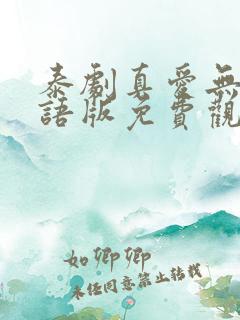 泰劇真愛無
語版免費觀
如卿卿
未经同意禁止转载